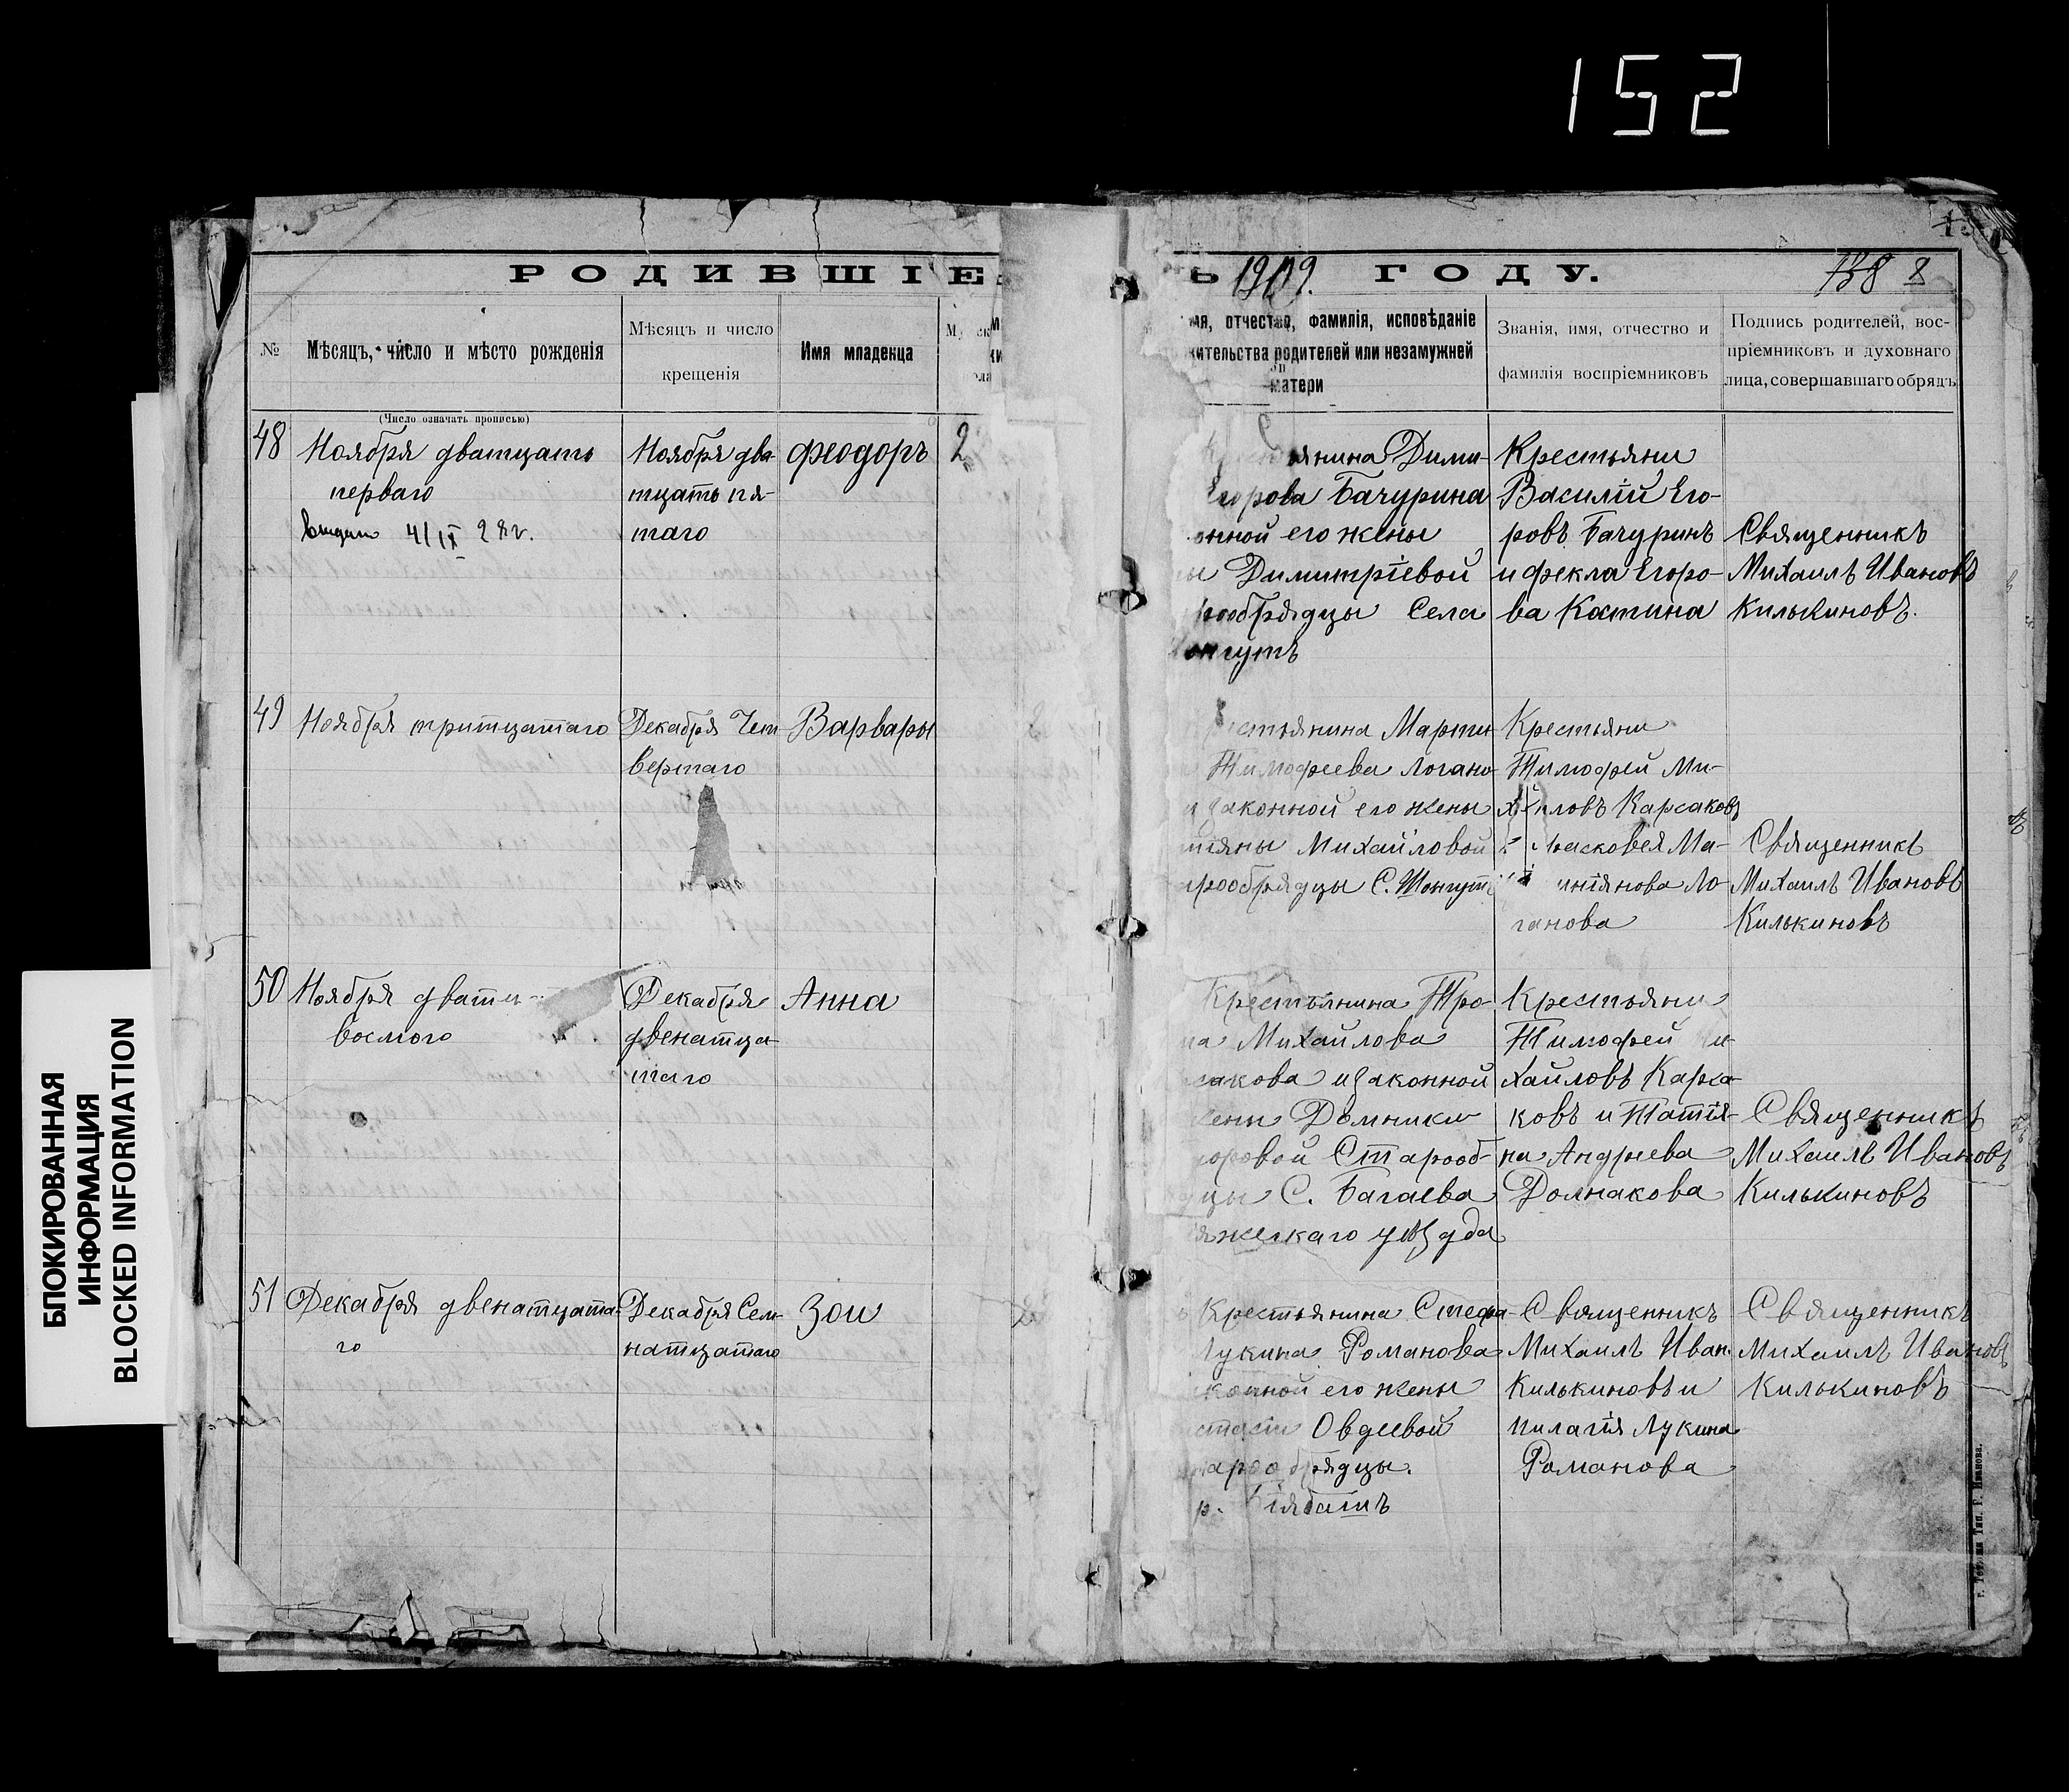 152
БЛОКИРОВАННАЯ
ИНФОРМАЦИЯ
BLOCKED INFORMATION
РОДИВШІЕ
Ь 1909. ГОДУ.
8
№
Мѣсяцъ, число и мѣсто рожденія
(Число означать прописью)
Мѣсяцъ и число
крещенія
Имя младенца
мя, отчество, фамилія, исповѣданіе
жительства родителей или незамужней
матери
Званія, имя, отчество и
фамилія воспріемниковъ
Подпись родителей, вос-
пріемниковъ и духовнаго
лица, совершавшаго обрядъ
48
Ноября дватцать
перваго
выдано 4/IX 28г.
Ноября два-
тцать пя-
таго
Феодоръ
2
янина Дими-
Егорова Бачурина
онной его жены
ы Димитріевой
рообрядцы Села
онгутъ
Крестьяни
Василій Его-
ровъ Бачуринъ
и Фекла Егоро-
ва Катина
Священникъ
Михаилъ Ивановъ
Килькиновъ.
49
Ноября тритцатаго
Декабря Чет
вертаго
Варвары
стьянина Марти-
Тимофеева Логано-
и законной его жены
тіяны Михайловой
арообрядцы С. Шонгутъ
Крестьяни
Тимофей Ми-
хаиловъ Карсаковъ
расковея Ма-
интянова Ло-
ганова
Священникъ
Михаилъ Ивановъ
Килькиновъ
50
Ноября дватц
восмого
Декабря
двенатца-
таго
Анна
Крестьянина Тро-
на Михайлова
сакова и законной
жены Домники
доровой Старооб-
дцы С. Багаева
яжскаго уѣзда
Крестьяни
Тимофей и-
хайловъ Карса-
ковъ и Татія-
на Андреева
Долмакова
Священникъ
Михаилъ Ивановъ
Килькиновъ
51
Декабря двенатцата-
го
Декабря Сем-
натцатаго
Зои
Крестьянина Стефа-
Лукина Романова
конной его жены
стасіи Овдеевой
тарообрядцы.
Священникъ
Михаилъ Иван.
Килькиновъ и
пилагія Лукина
Романова
Священникъ
Михаилъ Ивановъ
Килькиновъ